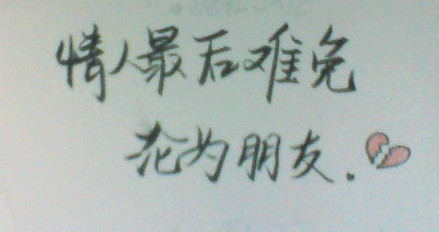 情人最后难免
沦为朋友.